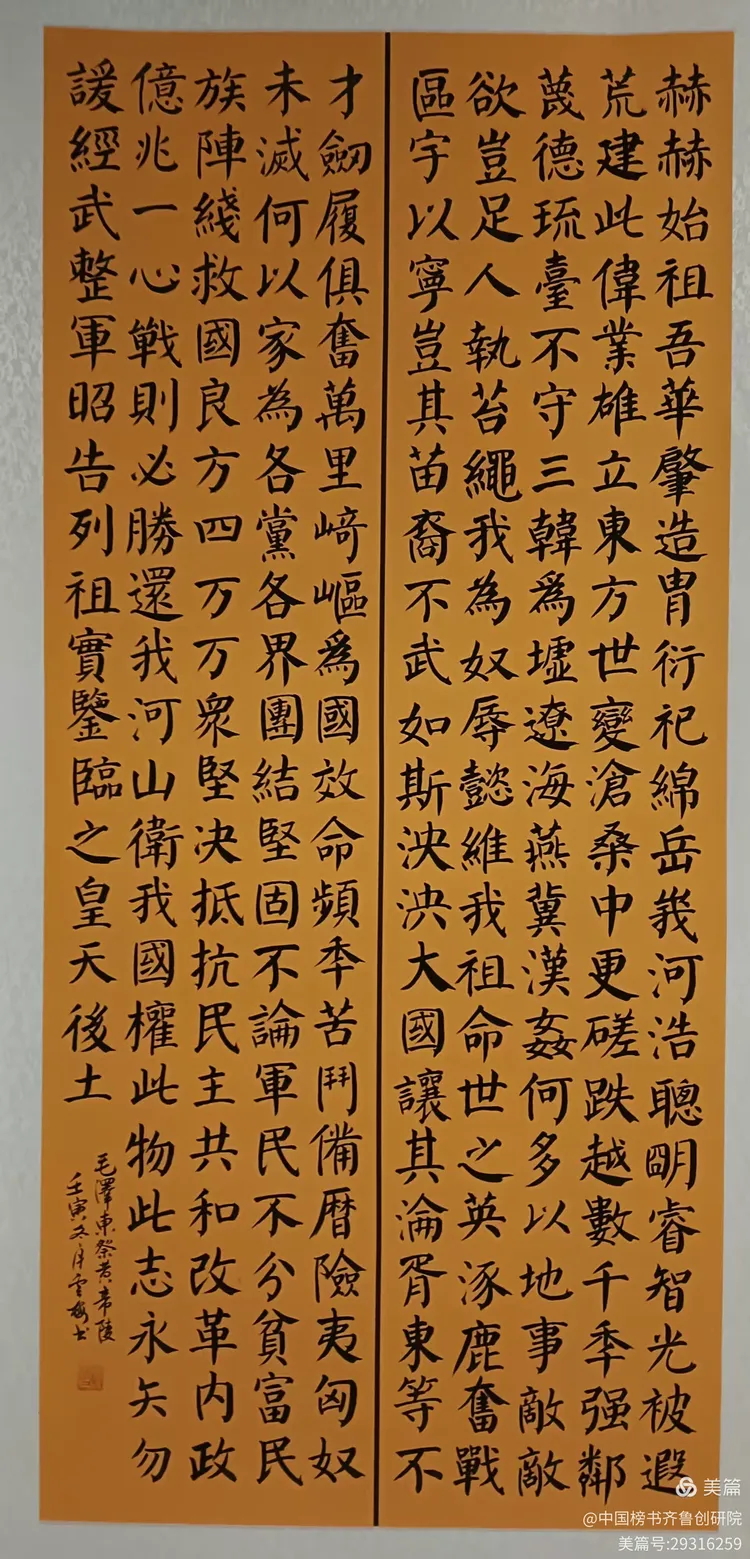 赫赫始祖吾華肇造胄衍祀綿岳峩河浩聰明睿智光被遐
荒建此偉業雄立東方世變滄桑中更磋跌越數千秊强鄰
蔑德琉臺不守三韓為墟遼海燕冀漢姦何多以地事敵敵
欲豈足人執笞繩我為奴辱懿維我祖命世之英涿鹿奮戰
區宇以寧豈其苗裔不武如斯泱泱大國讓其淪胥東等不
才劒履俱奮萬里崎嶇為國效命頻秊苦鬥備曆險夷匈奴
未滅何以家為各黨各界團結堅固不論軍民不分貧富民
族陣綫救國良方四万万衆堅决抵抗民主共和改革内政
億兆一心戰則必勝還我河山衛我國權此物此志永矢勿
諼經武整軍昭告列祖實鑒臨之皇天後土
毛澤東祭黄帝陵
壬寅冬月雲梅书
美篇
@中国榜书齐鲁创研院
美篇号:29316259